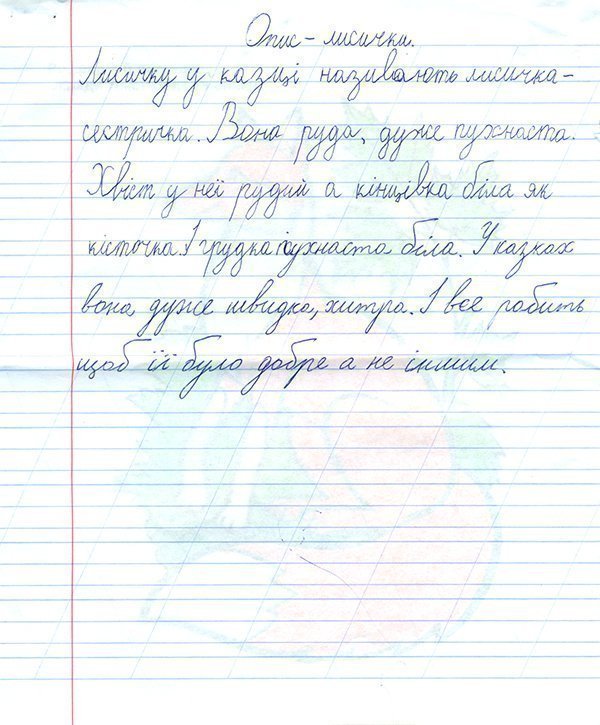 Опис - лисички.
Лисичку у казці називають лисичка-
сестричка. Вона руда, дуже пухнаста.
Хвіст у неї рудий а кінцівка біла як
кісточка. І грудка пухнаста біла. У казках
вона дуже швидка, хитра. І все робить
щоб їй було добре а не іншим.